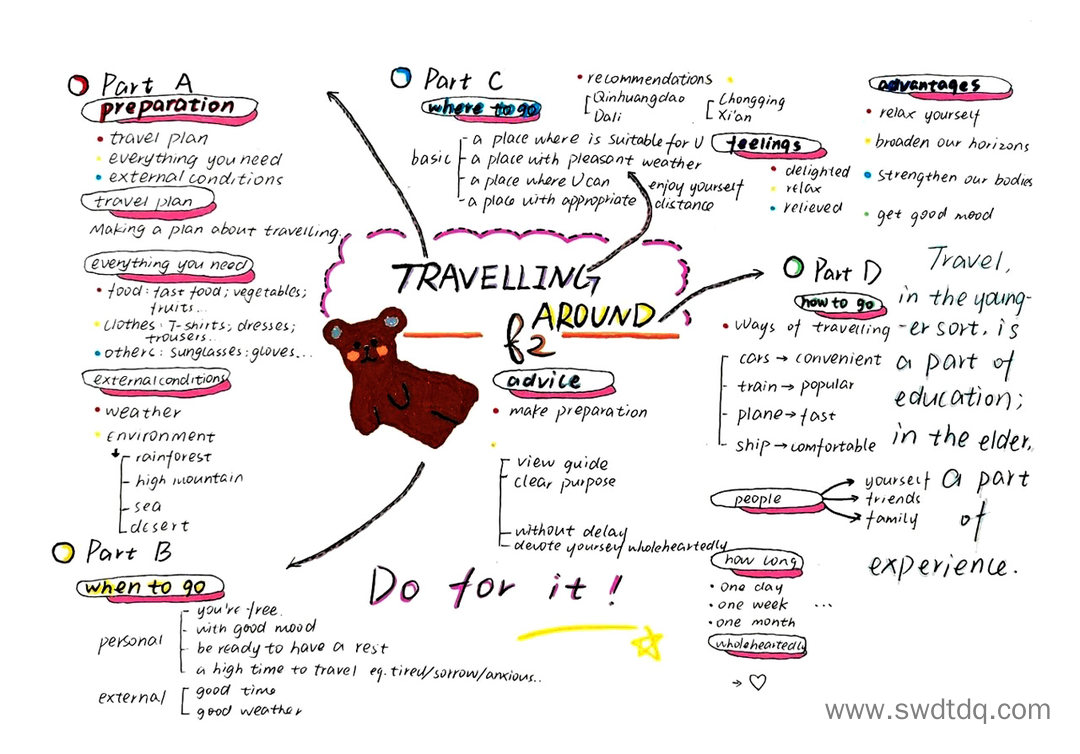 Part A
preparation
travel plan
everything you need
external conditions
travel plan
Making a plan about travelling.
everything you need
food: fast food; vegetables;
fruits...
clothes: T-shirts; dresses;
trousers..
others: sunglasses; gloves...
external conditions
weather
environment
rainforest
high mountain
sea
desert
Part B
when to go
personal
you're free.
with good mood
be ready to have a rest
a high time to travel eg. tired/sorrow/anxious..
external
good time
good weather
Part C
where to go
recommendations
Qinhuangdao
Dali
Chongqing
Xi'an
basic
a place where is suitable for U
a place with pleasant weather
a place where U can enjoy yourself
a place with appropriate distance
feelings
delighted
relax
relieved
advantages
relax yourself
broaden our horizons
strengthen our bodies
get good mood
TRAVELLING
AROUND
advice
make preparation
view guide
clear purpose
without delay
devote yourself wholeheartedly
Do for it!
Part D
how to go
ways of travelling
cars → convenient
train → popular
plane → fast
ship → comfortable
people
yourself
friends
family
how long
one day
one week ...
one month
wholeheartedly
→ ♡
Travel,
in the young-
-er sort, is
a part of
education;
in the elder,
a part
of
experience.
www.swdtdq.com